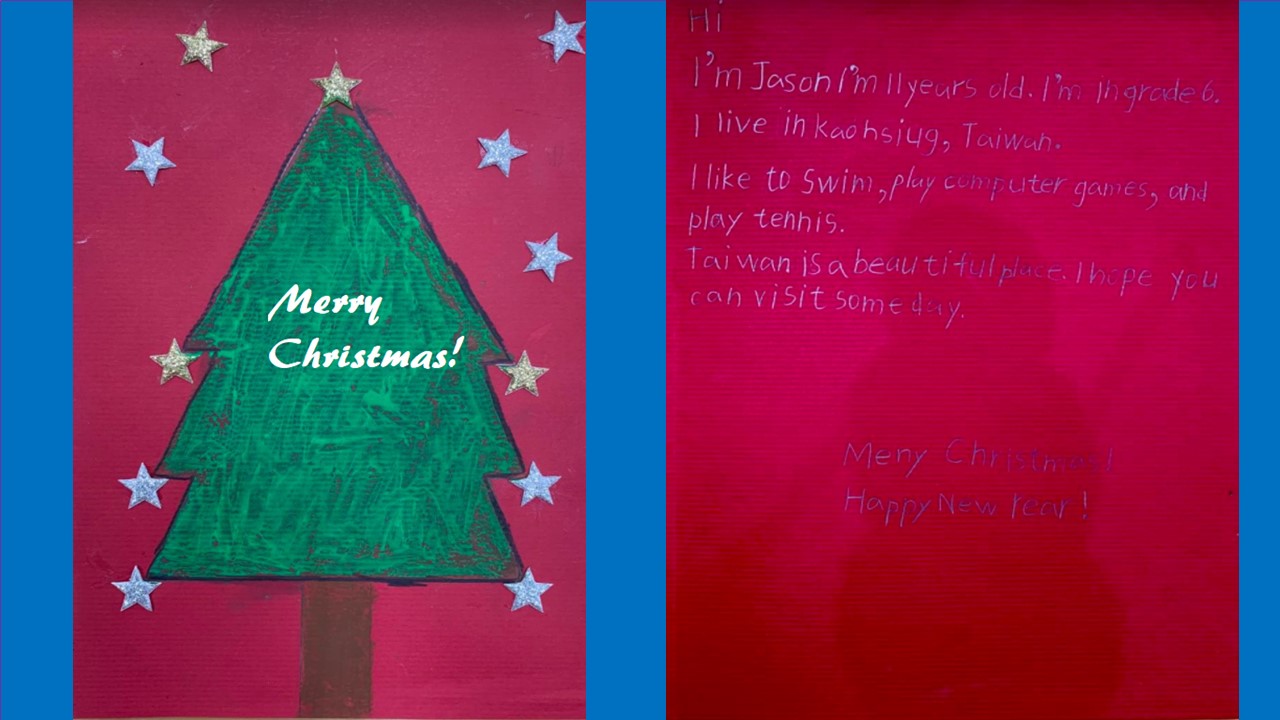 Merry
Christmas!
Hi
I'm Jason I'm 11 years old. I'm in grade 6.
I live in kaohsiug, Taiwan.
I like to swim, play computer games, and
play tennis.
Taiwan is a beautiful place. I hope you
can visit someday.
Merry Christmas!
Happy New Year!